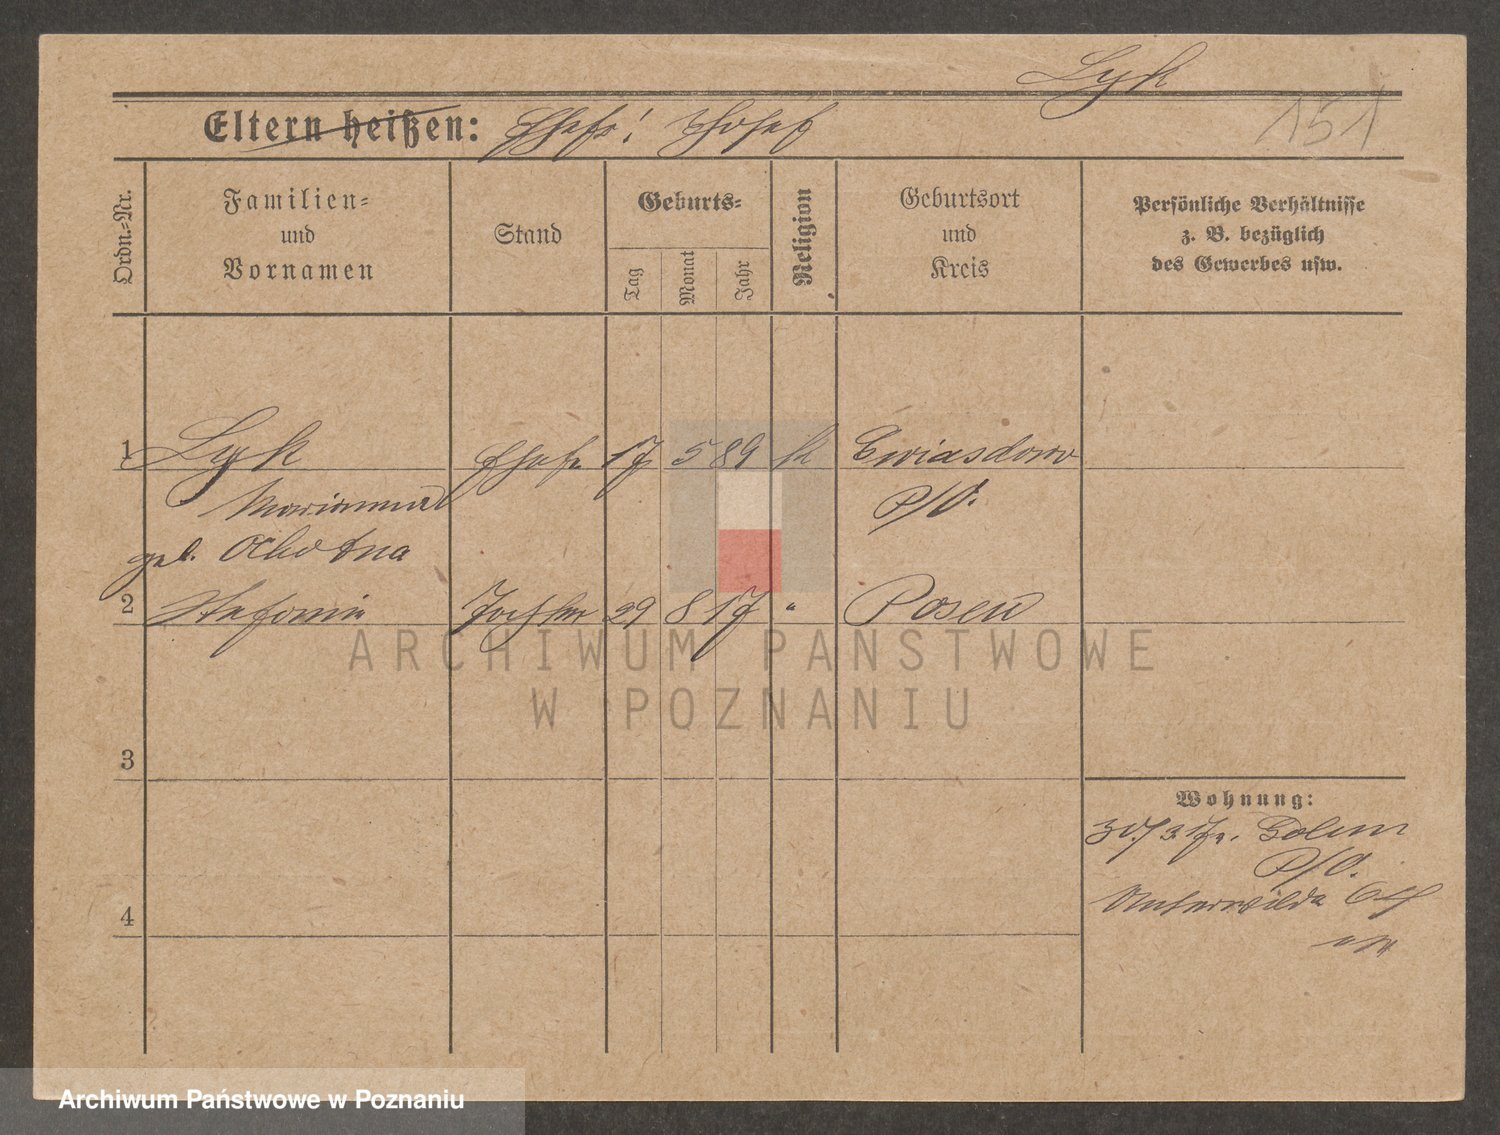 Lyk
Eltern heißen: Ehefr! Josef
151
Ordn.-Nr.
Familien- und Vornamen
Stand
Geburts-
Tag
Monat
Jahr
Religion
Geburtsort und Kreis
Persönliche Verhältnisse
z. B. bezüglich
des Gewerbes usw.
1 Lyk Ehefr 17 5 89 k Gwiasdowo
Marianna P/O.
geb. Ochotna
2 Stefania Tochter 29 8 17 " Posen
3
Wohnung:
P/O.
4
Unterwilda 64
ARCHIWUM PAŃSTWOWE
W POZNANIU
Archiwum Państwowe w Poznaniu